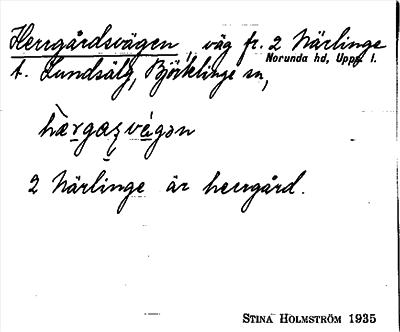 Herrgårdsvägen, väg fr. 2 Närlinge
Norunda hd, Upps. l.
t. Lundsälg, Björklinge sn,
2 Närlinge är herrgård.
STINA HOLMSTRÖM 1935